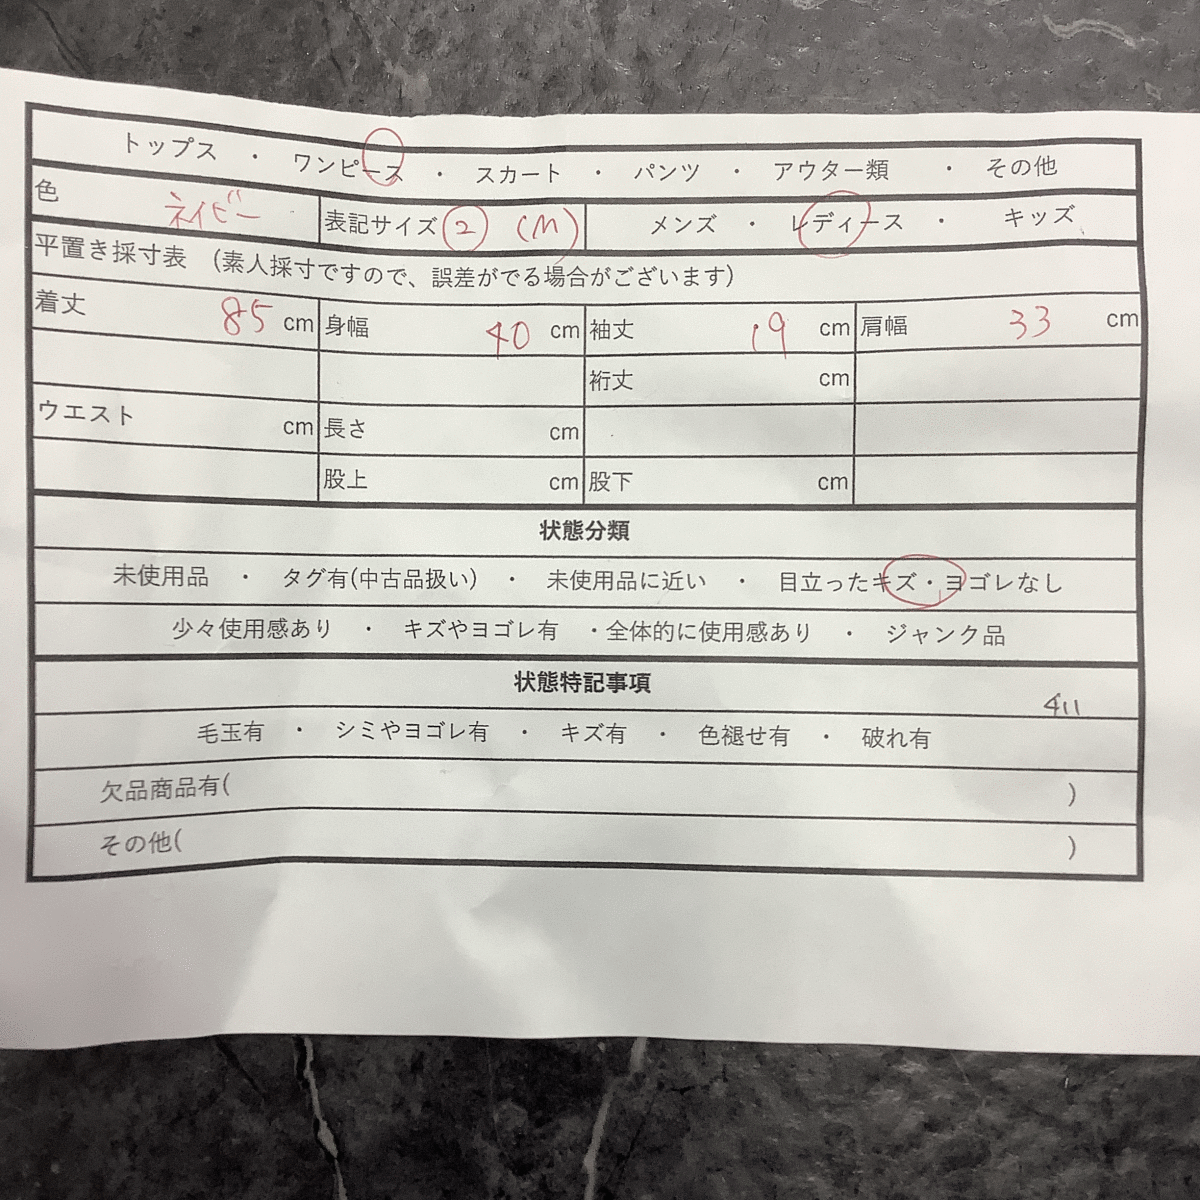 トップス ・ ワンピース ・ スカート ・ パンツ ・ アウター類 ・ その他
色 ネイビー 表記サイズ ② (M) メンズ ・ レディース ・ キッズ
平置き採寸表 (素人採寸ですので、誤差がでる場合がございます)
着丈 85 cm 身幅 40 cm 袖丈 19 cm 肩幅 33 cm
裄丈 cm
ウエスト cm 長さ cm
股上 cm 股下 cm
状態分類
未使用品 ・ タグ有(中古品扱い) ・ 未使用品に近い ・ 目立ったキズ・ヨゴレなし
少々使用感あり ・ キズやヨゴレ有 ・全体的に使用感あり ・ ジャンク品
状態特記事項
411
毛玉有 ・ シミやヨゴレ有 ・ キズ有 ・ 色褪せ有 ・ 破れ有
欠品商品有( )
その他( )